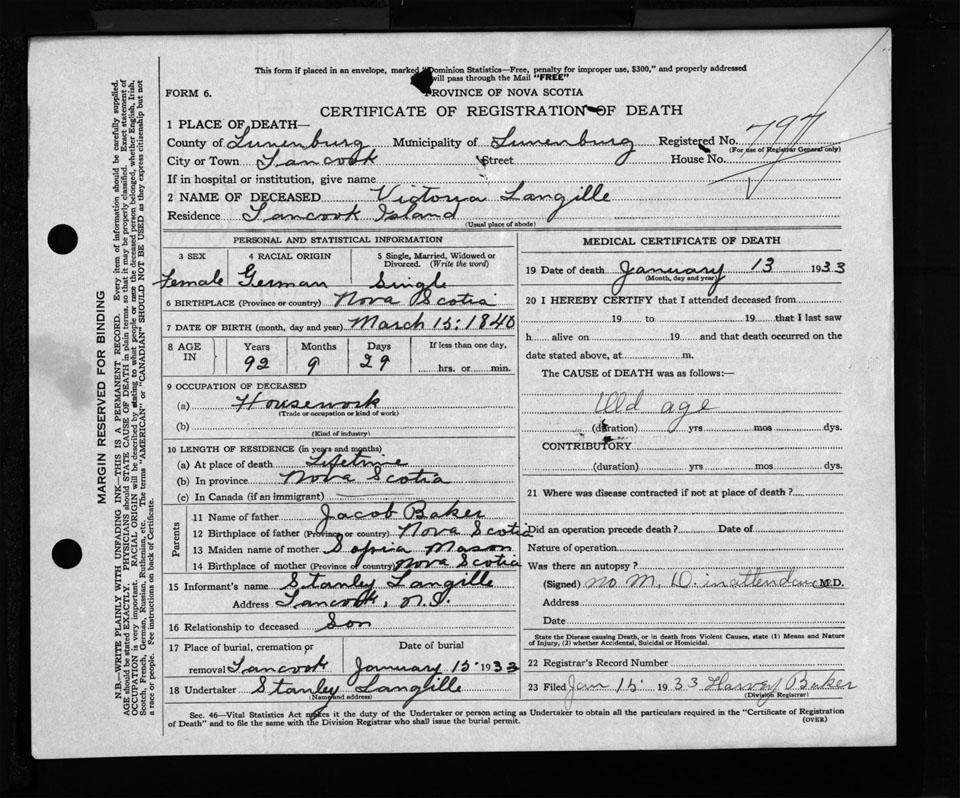 This form if placed in an envelope, marked "Dominion Statistics—Free, penalty for improper use, $300," and properly addressed
will pass through the Mail "FREE"
FORM 6.
PROVINCE OF NOVA SCOTIA
CERTIFICATE OF REGISTRATION OF DEATH
797
1 PLACE OF DEATH—
County of Lunenburg Municipality of Lunenburg Registered No.
(For use of Registrar General only)
City or Town Tancook Street House No.
If in hospital or institution, give name
2 NAME OF DECEASED Victoria Langille
Residence Tancook Island
(Usual place of abode)
PERSONAL AND STATISTICAL INFORMATION
3 SEX 4 RACIAL ORIGIN 5 Single, Married, Widowed or
Divorced. (Write the word)
Female German Single
6 BIRTHPLACE (Province or country) Nova Scotia
7 DATE OF BIRTH (month, day and year) March 15: 1840
8 AGE IN Years Months Days If less than one day,
92 9 29 hrs. or min.
9 OCCUPATION OF DECEASED
(a) Housework
(Trade or occupation or kind of work)
(b)
(Kind of industry)
10 LENGTH OF RESIDENCE (in years and months)
(a) At place of death Lifetime
(b) In province Nova Scotia
(c) In Canada (if an immigrant)
Parents
11 Name of father Jacob Baker
12 Birthplace of father (Province or country) Nova Scotia
13 Maiden name of mother Sophia Mason
14 Birthplace of mother (Province of country) Nova Scotia
15 Informant's name Stanley Langille
Address Tancook, N.S.
16 Relationship to deceased Son
17 Place of burial, cremation or Date of burial
removal Tancook January 15: 1933
18 Undertaker Stanley Langille
(Name and address)
MEDICAL CERTIFICATE OF DEATH
19 Date of death January 13 1933
(Month, day and year)
20 I HEREBY CERTIFY that I attended deceased from
19 to 19 that I last saw
h alive on 19 and that death occurred on the
date stated above, at m.
The CAUSE of DEATH was as follows:—
Old age
(duration) yrs mos dys.
CONTRIBUTORY
(duration) yrs mos dys.
21 Where was disease contracted if not at place of death?
Did an operation precede death? Date of
Nature of operation
Was there an autopsy?
(Signed) no M. D. in attendance M.D.
Address
Date
State the Disease causing Death, or in death from Violent Causes, state (1) Means and Nature
of Injury, (2) whether Accidental, Suicidal or Homicidal.
22 Registrar's Record Number
23 Filed Jan 15: 1933 Harvey Baker
(Division Registrar)
Sec. 46—Vital Statistics Act makes it the duty of the Undertaker or person acting as Undertaker to obtain all the particulars required in the "Certificate of Registration
of Death" and to file the same with the Division Registrar who shall issue the burial permit.
(OVER)
MARGIN RESERVED FOR BINDING
N.B.—WRITE PLAINLY WITH UNFADING INK—THIS IS A PERMANENT RECORD. Every item of information should be carefully supplied.
AGE should be stated EXACTLY. PHYSICIANS should STATE CAUSE OF DEATH in plain terms, so that it may be properly classified. Exact statement of
OCCUPATION is very important. RACIAL ORIGIN will be described by stating to what people or race the deceased person belonged, whether English, Irish,
Scotch, French, German, Russian, Ruthenian, etc. The terms "AMERICAN" or "CANADIAN" SHOULD NOT BE USED as they express citizenship but not
a race or people. See instructions on back of Certificate.